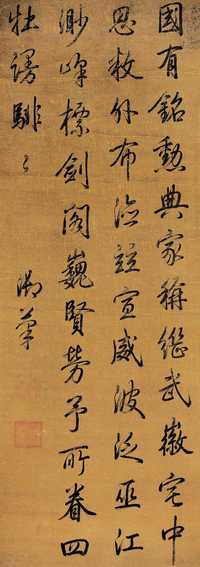 國有銘勲典家稱繼武徽宅中
恩外布竝宣威波泛巫江
渺峰標劍閣巍賢勞予所眷四
牡謾騑々
御筆